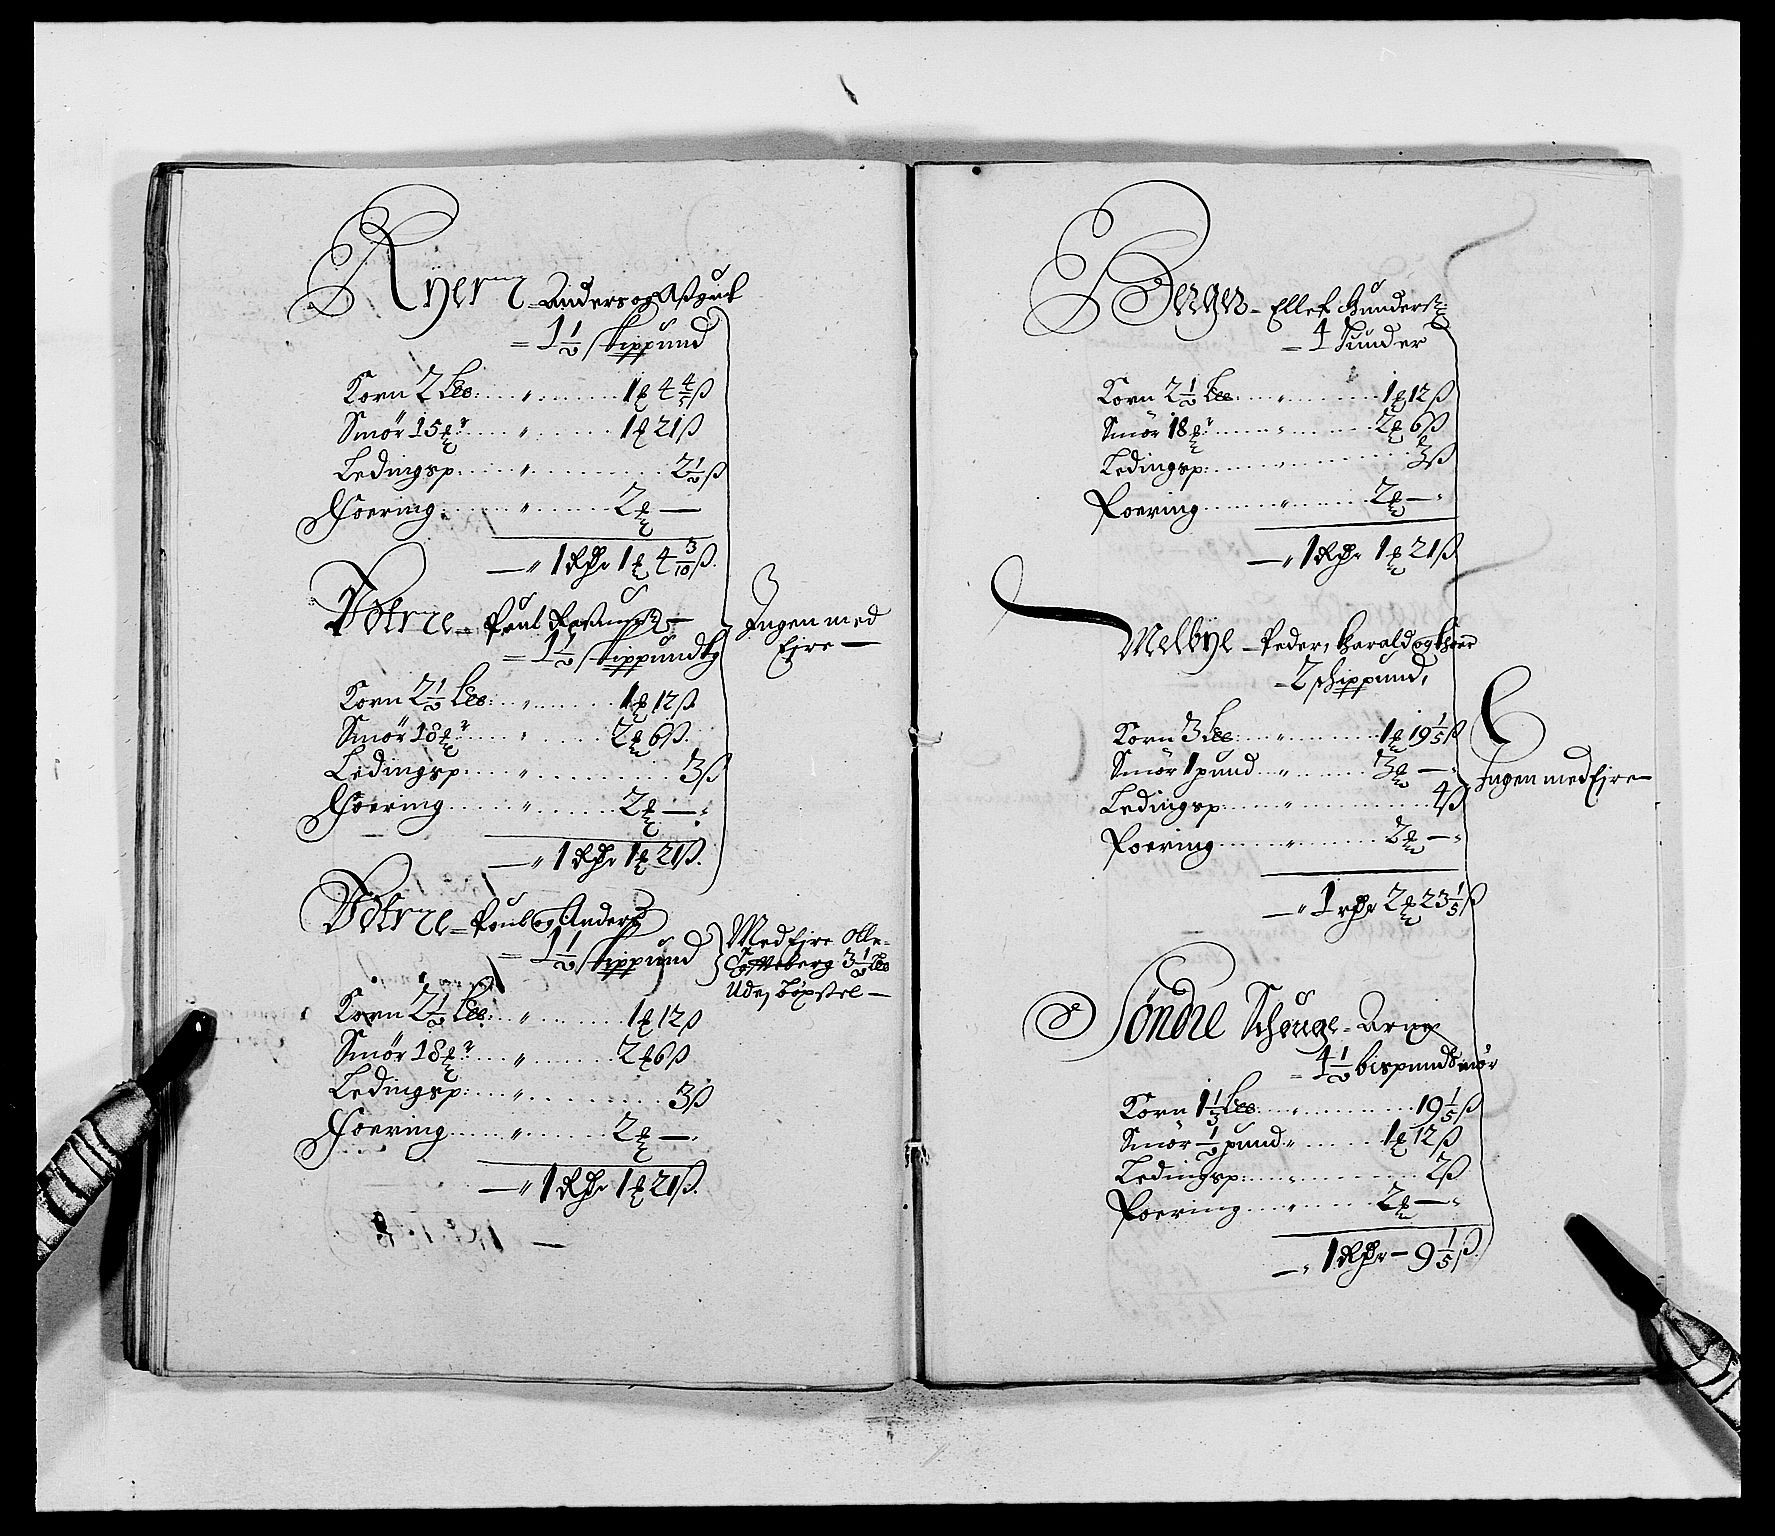 Ryern Anders og Aßgut
= 1½ skippund
Korn 2 Lee: " 1 ℔ 4 4/5 ß
Smör 15 ℔r " 1 ℔ 21 ß
Ledingsp: " 2½ ß
Foering " 2 ℔ —
— " 1 Rdr 1 ℔ 4 3/10 ß.
Poul
= 1½ skippund
Korn 2½ Lee: " 1 ℔ 12 ß
Smör 18 ℔r " 2 ℔ 6 ß.
Ledingsp: " 3 ß
Foering " 2 ℔ —
— " 1 Rdr 1 ℔ 21 ß.
Ingen med
Eire —
Poul og Anders
= 1½ skippund
Korn 2½ Lee: " 1 ℔ 12 ß
Smör 18 ℔r " 2 ℔ 6 ß
Ledingsp: " 3 ß
Foering " 2 ℔ —
— " 1 Rdr 1 ℔ 21 ß.
Med Eire Olle
3½ Lee
Udej böxsel —
Berger – Ellef Gunderß:
= 4 Tunder
Korn 2½ Lee: " 1 ℔ 12 ß
Smör 18 ℔r " 2 ℔ 6 ß
Ledingsp: " 3 ß
Foering " 2 ℔ — "
— " 1 Rdr 1 ℔ 21 ß
Melbye – Peder, Harald og
= 2 schippund,
Korn 3 Lee: " 1 ℔ 19 1/5 ß
Smör 1 pund " 3 ℔ — "
Ledingsp: " 4 ß
Foering " 2 ℔ — "
— " 1 rdr 2 ℔ 23 1/5 ß
Ingen med Eire —
Söndre Schouge – Arne
= 4½ bispund Smör
Korn 1⅓ Lee " 19 1/5 ß
Smör ½ pund " 1 ℔ 12 ß
Ledingsp: " 2 ß
Foering " 2 ℔ — "
— " 1 Rdr – 9 1/5 ß.